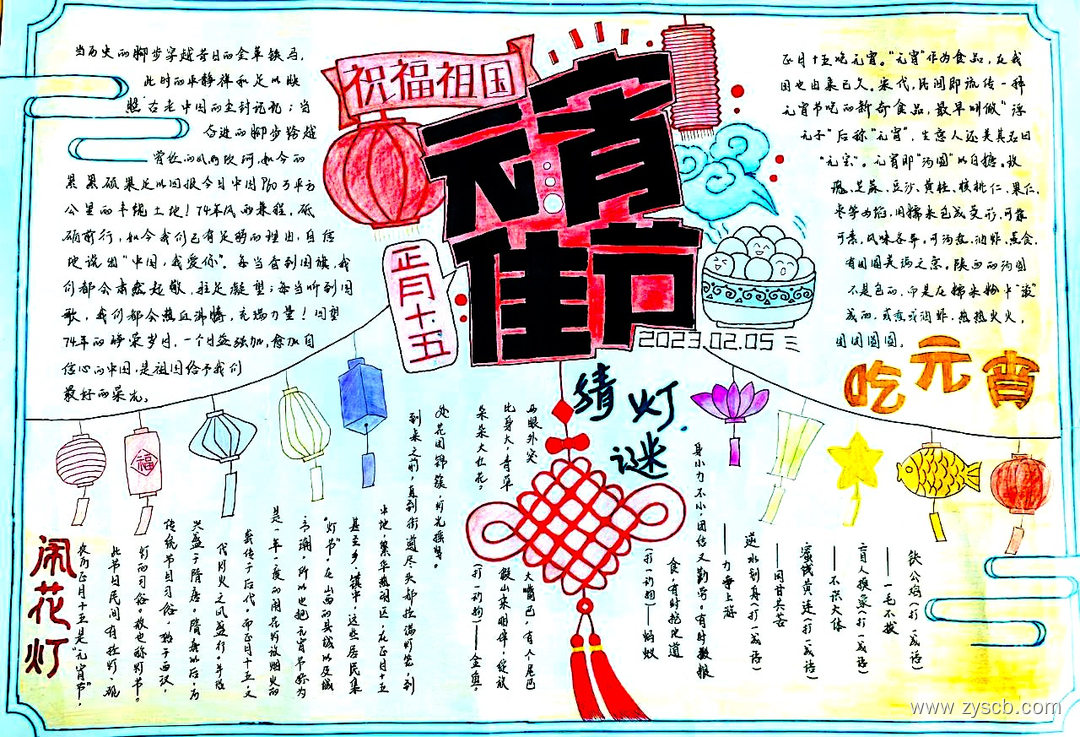 祝福祖国
元宵佳节
正月十五
2023.02.05
当历史的脚步穿越昔日的金革铁马,
此时的平静祥和足以映
照古老中国的尘封记忆;当
奋进的脚步跨越
曾经的风雨坎坷,如今的
累累硕果足以回报今日中国960万平方
公里的丰饶土地!74年风雨兼程,砥
砺前行,如今我们已有足够的理由,自信
地说出“中国,我爱你”。每当看到国旗,我
们都会肃然起敬,驻足凝望;每当听到国
歌,我们都会热血沸腾,充满力量!回望
74年的峥嵘岁月,一个日益强加,愈加自
信心的中国,是祖国给予我们
最好的荣光。
正月十五吃元宵。“元宵”作为食品,在我
国也由来已久。宋代,民间即流传一种
元宵节吃的新奇食品,最早叫做“浮
元子”后称“元宵”,生意人还美其名曰
“元宝”。元宵即“汤圆”以白糖、玫
瑰、芝麻、豆沙、黄桂、核桃仁、果仁、
枣等为馅,用糯米包成
可素,风味各异。可汤煮、油炸、蒸食,
有团圆美满之意。陕西的汤圆
不是包的,而是在糯米粉中“滚”
成的,或煮或油炸,热热火火,
团团圆圆。
吃元宵
猜灯谜
福
闹花灯
农历正月十五是“元宵节”,
此节日民间有挂灯、观
灯的习俗,故也称灯节。
传统节日习俗,始于西汉,
兴盛于隋唐。隋唐以后,历
代灯火之风盛行,并沿
袭传于后代。而正月十五,又
是一年一度的闹花灯放烟火的
高潮,所以也把元宵节称为
“灯节”,在山西的县城以及城
甚至乡、镇中,这些居民集
中地,繁华热闹区,在正月十五
到来之前,直到街道尽头都挂满灯笼,到
处花团锦簇,灯光摇曳。
马眼外突
大嘴巴,有个尾巴
比身大,青草
假山来相伴,绽放
朵朵大红花。
(打一动物)——金鱼
身小力不小,团结又勤劳。有时搬粮
食,有时挖地道
(打一动物)——蚂蚁
逆水划舟(打一成语)
——力争上游
蜜饯黄连(打一成语)
——同甘共苦
盲人摸象(打一成语)
——不识大体
铁公鸡(打一成语)
——一毛不拔
www.zyscb.com